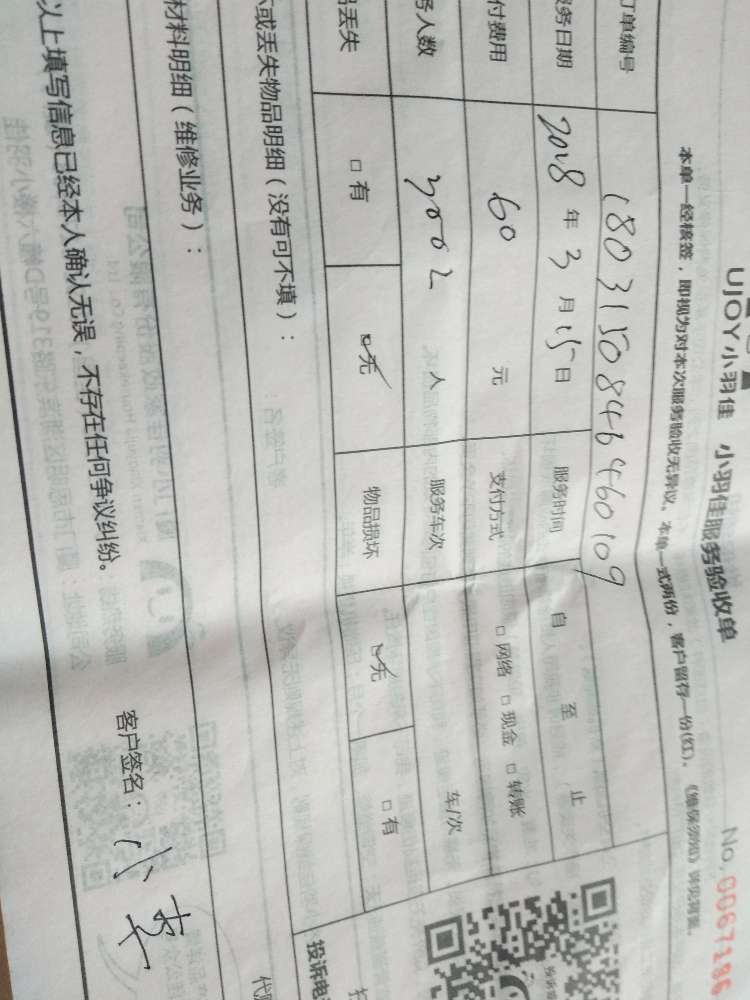 UJOY小羽佳 小羽佳服务验收单
No.0067186
本单一经核签，即视为对本次服务验收无异议。本单一式两份，客户留存一份(红)。《维保须知》详见背面。
订单编号 180315084646460109
服务日期 2018年3月15日 服务时间 自 至 止
付费用 60 元 支付方式 □网络 □现金 □转账
务人数 人 服务车次 车/次
品丢失 □有 ☑无 物品损坏 ☑无 □有
坏或丢失物品明细（没有可不填）：
材料明细（维修业务）：
以上填写信息已经本人确认无误，不存在任何争议纠纷。
客户签名：小
投诉电